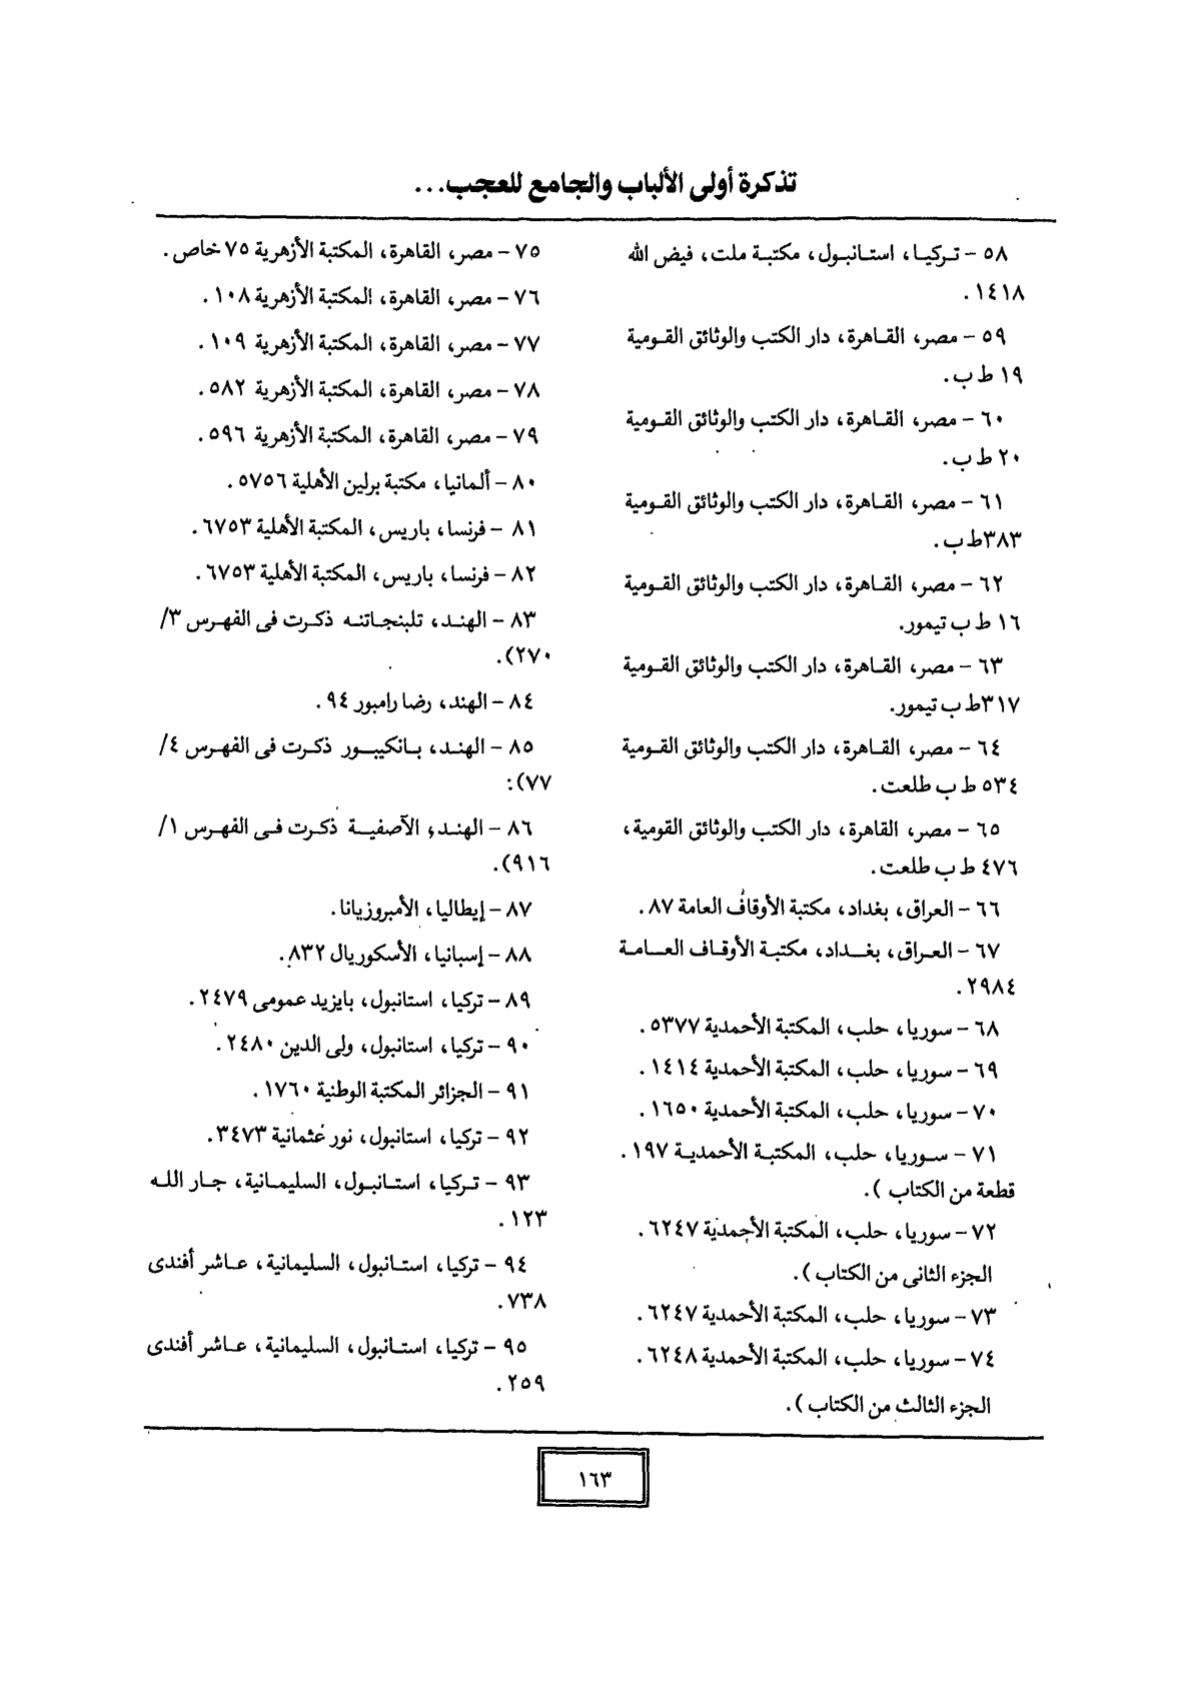 تذكرة أولى الألباب والجامع للعجب...
٥٨ - تركيا، استانبول، مكتبة ملت، فيض الله
١٤١٨.
٥٩ - مصر، القاهرة، دار الكتب والوثائق القومية
١٩ ط ب.
٦٠ - مصر، القاهرة، دار الكتب والوثائق القومية
٢٠ ط ب.
٦١ - مصر، القاهرة، دار الكتب والوثائق القومية
٣٨٣ط ب.
٦٢ - مصر، القاهرة، دار الكتب والوثائق القومية
١٦ ط ب تيمور.
٦٣ - مصر، القاهرة، دار الكتب والوثائق القومية
٣١٧ط ب تيمور.
٦٤ - مصر، القاهرة، دار الكتب والوثائق القومية
٥٣٤ ط ب طلعت.
٦٥ - مصر، القاهرة، دار الكتب والوثائق القومية،
٤٧٦ ط ب طلعت.
٦٦ - العراق، بغداد، مكتبة الأوقاف العامة ٨٧.
٦٧ - العراق، بغداد، مكتبة الأوقاف العامة
٢٩٨٤.
٦٨ - سوريا، حلب، المكتبة الأحمدية ٥٣٧٧.
٦٩ - سوريا، حلب، المكتبة الأحمدية ١٤١٤.
٧٠ - سوريا، حلب، المكتبة الأحمدية ١٦٥٠.
٧١ - سوريا، حلب، المكتبة الأحمدية ١٩٧.
قطعة من الكتاب ).
٧٢ - سوريا، حلب، المكتبة الأحمدية ٦٢٤٧.
الجزء الثانى من الكتاب ).
٧٣ - سوريا، حلب، المكتبة الأحمدية ٦٢٤٧.
٧٤ - سوريا، حلب، المكتبة الأحمدية ٦٢٤٨.
الجزء الثالث من الكتاب ).
٧٥ - مصر، القاهرة، المكتبة الأزهرية ٧٥ خاص.
٧٦ - مصر، القاهرة، المكتبة الأزهرية ١٠٨.
٧٧ - مصر، القاهرة، المكتبة الأزهرية ١٠٩.
٧٨ - مصر، القاهرة، المكتبة الأزهرية ٥٨٢.
٧٩ - مصر، القاهرة، المكتبة الأزهرية ٥٩٦.
٨٠ - ألمانيا، مكتبة برلين الأهلية ٥٧٥٦.
٨١ - فرنسا، باريس، المكتبة الأهلية ٦٧٥٣.
٨٢ - فرنسا، باريس، المكتبة الأهلية ٦٧٥٣.
٨٣ - الهند، تلبنجاتنه ذكرت فى الفهرس ٣/
٢٧٠).
٨٤ - الهند، رضا رامبور ٩٤.
٨٥ - الهند، بانكيبور ذكرت فى الفهرس ٤/
٧٧):
٨٦ - الهند، الآصفية ذكرت فى الفهرس ١/
٩١٦).
٨٧ - إيطاليا، الأمبروزيانا.
٨٨ - إسبانيا، الأسكوريال ٨٣٢.
٨٩ - تركيا، استانبول، بايزيد عمومى ٢٤٧٩.
٩٠ - تركيا، استانبول، ولى الدين ٢٤٨٠.
٩١ - الجزائر المكتبة الوطنية ١٧٦٠.
٩٢ - تركيا، استانبول، نور عثمانية ٣٤٧٣.
٩٣ - تركيا، استانبول، السليمانية، جار الله
١٢٣.
٩٤ - تركيا، استانبول، السليمانية، عاشر أفندى
٧٣٨.
٩٥ - تركيا، استانبول، السليمانية، عاشر أفندى
٢٥٩.
١٦٣